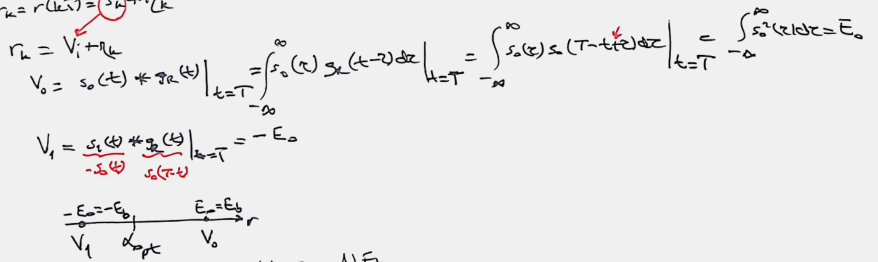 r_k = r(kT) = s_k + r_k
r_k = V_i + n_k
V_0 = s_0(t) * g_R(t)|_{t=T} = ∫_{-∞}^{∞} s_0(τ) g_R(t-τ)dτ|_{t=T} = ∫_{-∞}^{∞} s_0(τ) s_0(T-t+τ)dτ|_{t=T} = ∫_{-∞}^{∞} s_0²(τ)dτ = E_0
V_1 = s_1(t) * g_R(t)|_{t=T} = -E_0
-s_0(t) s_0(T-t)
-E_0=-E_b E_0=E_b r
V_1 α_opt V_0